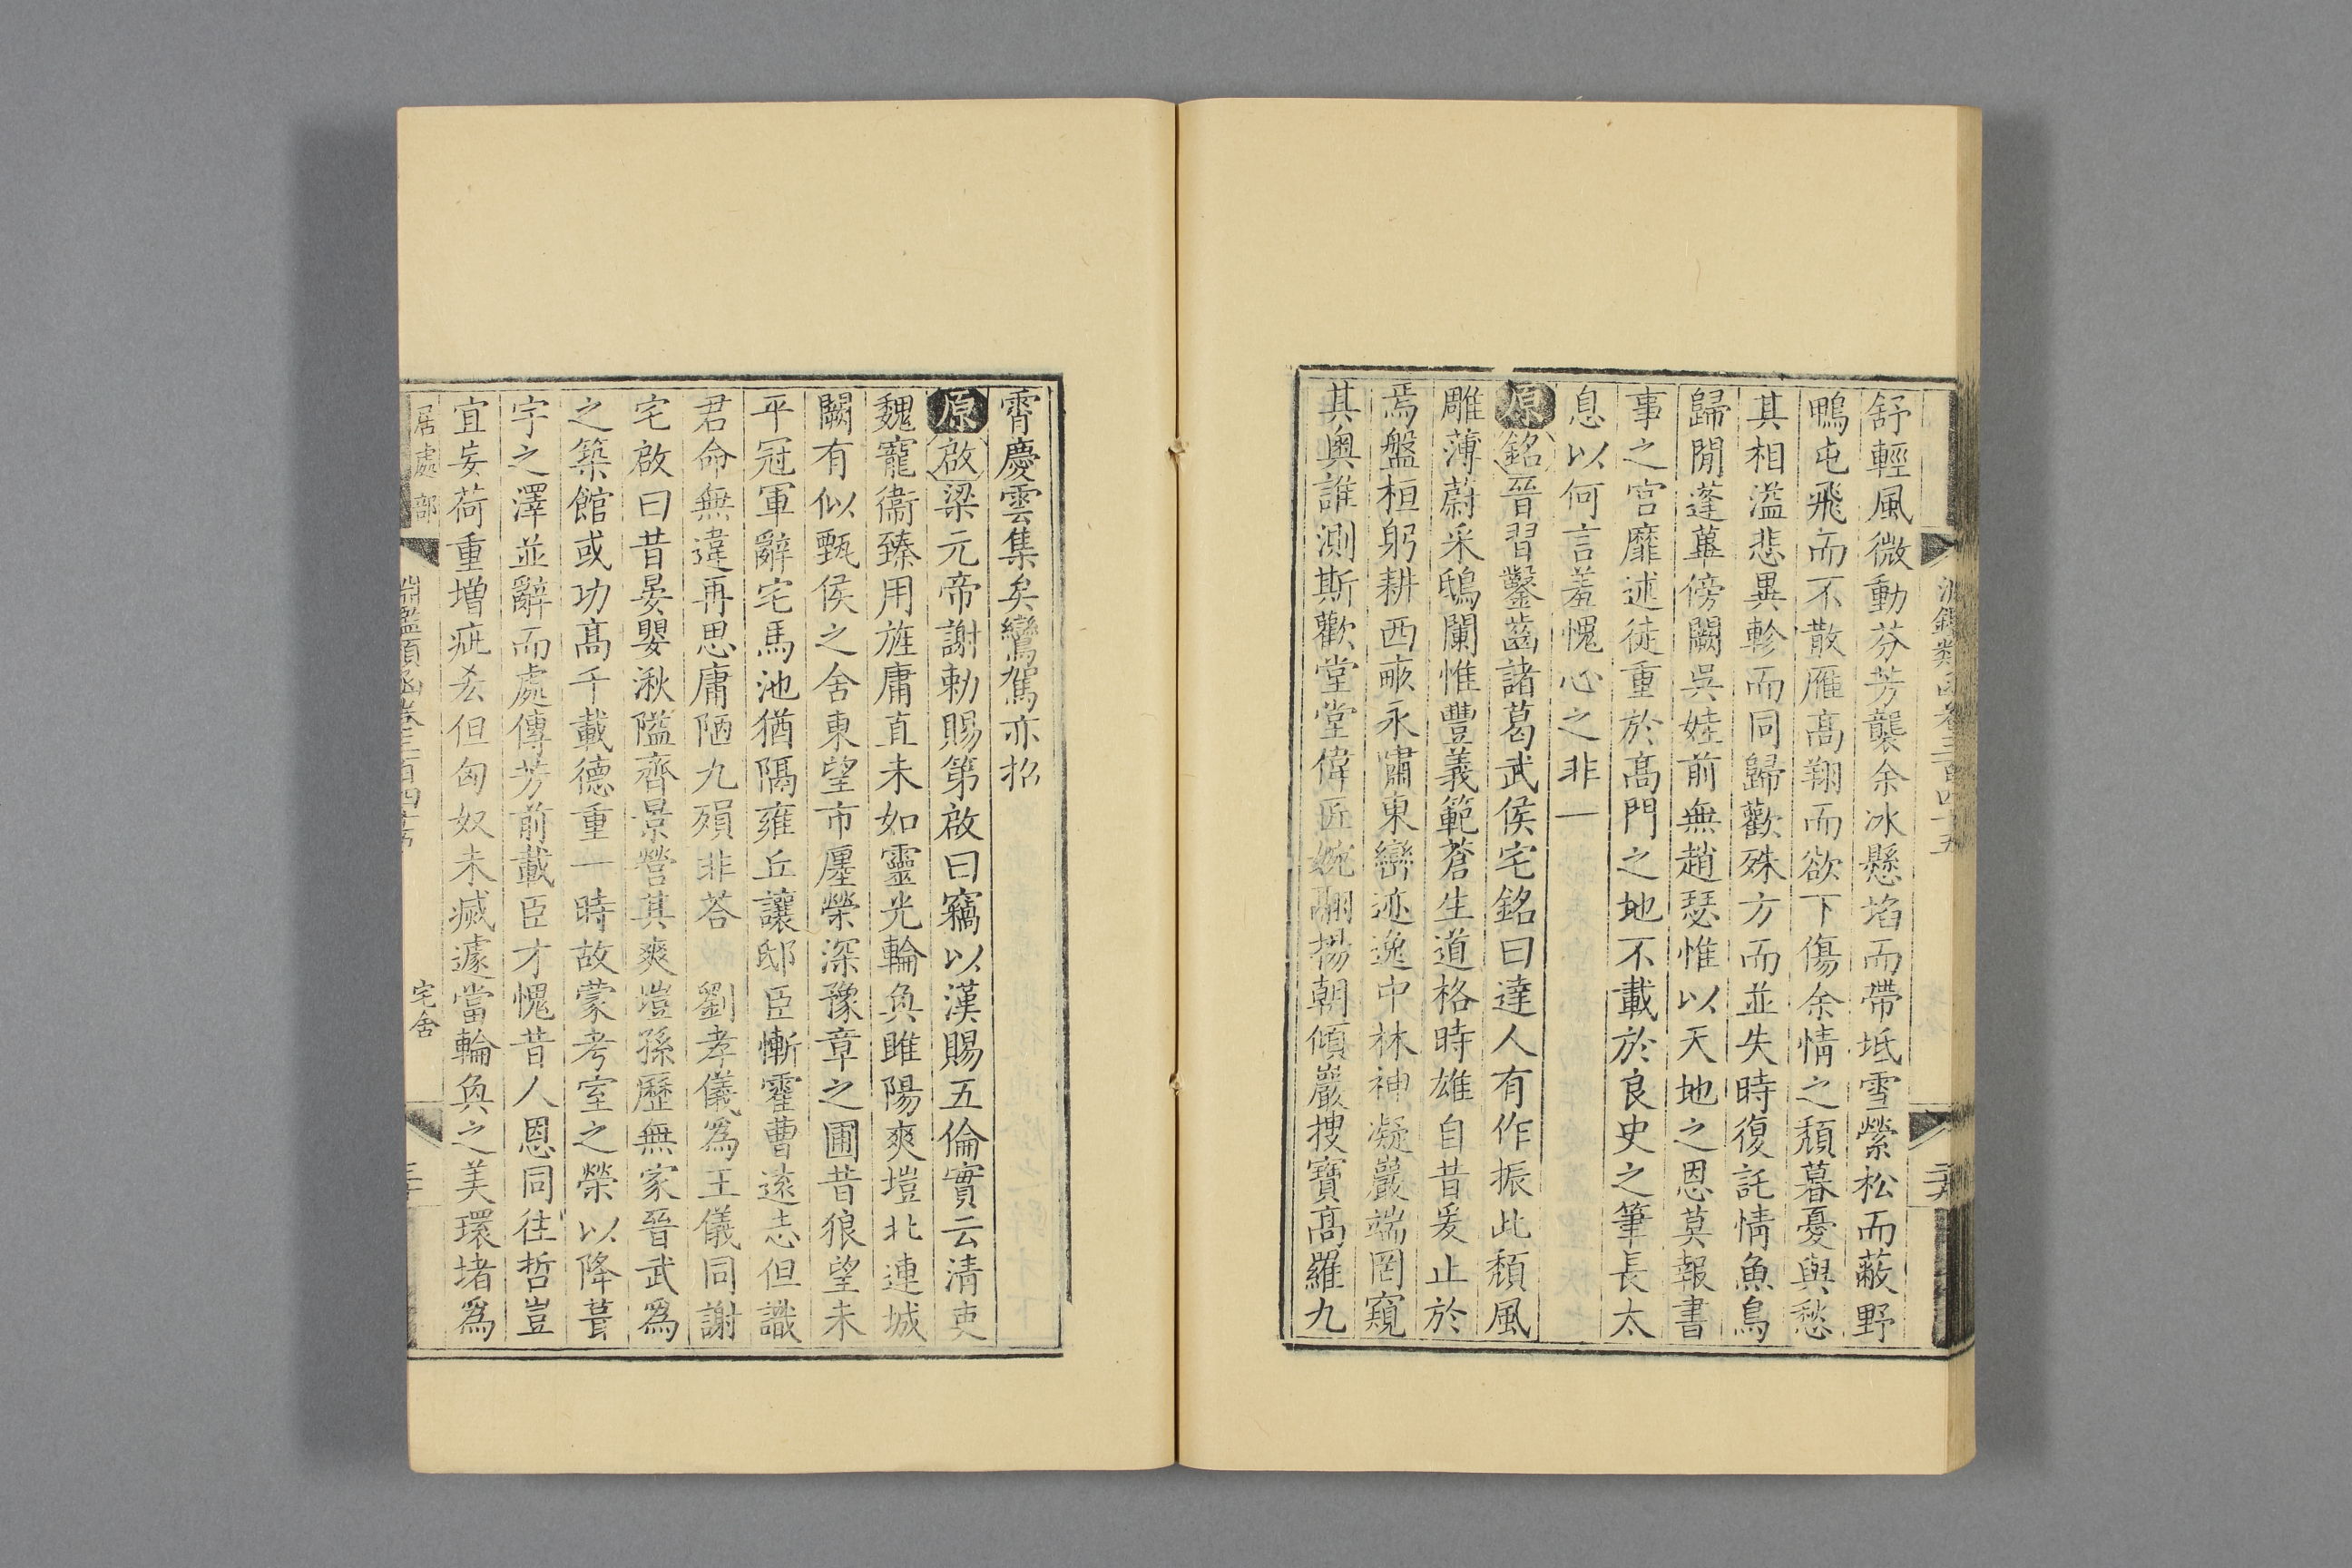 淵鑑類函卷三百四十五
舒輕風微動芬芳襲余冰懸埳而帶坻雪縈松而蔽野
鴨屯飛而不散雁高翔而欲下傷余情之頹暮憂與愁
其相溢悲異軫而同歸歡殊方而並失時復託情魚鳥
歸閒蓬蓽傍闕吳娃前無趙瑟惟以天地之恩莫報書
事之宫靡述徒重於高門之地不載於良史之筆長太
息以何言羞愧心之非一
原銘晉習鑿齒諸葛武侯宅銘曰達人有作振此頹風
雕薄蔚采鴟闌惟豐義範蒼生道格時雄自昔爰止於
焉盤桓躬耕西畝永嘯東巒迹逸中林神凝巖端罔窺
其奥誰測斯歡堂堂偉匠婉翮揚朝傾巖搜寶高羅九
霄慶雲集矣鸞駕亦招
原啟梁元帝謝勅賜第啟曰竊以漢賜五倫實云清吏
魏寵衞臻用旌庸直未如靈光輪奐雎陽爽塏北連城
闕有似甄侯之舍東望市廛榮深豫章之圃昔狼望未
平冠軍辭宅馬池猶隔雍丘讓邸臣慚霍曹遠志但識
君命無違再思庸陋九殞非荅 劉孝儀爲王儀同謝
宅啟曰昔晏嬰湫隘齊景營其爽塏孫歷無家晉武爲
之築館或功高千載德重一時故蒙考室之榮以降葺
宇之澤並辭而處傳芳前載臣才愧昔人恩同往哲豈
宜妄荷重增疵玄但匈奴未滅遽當輪奐之美環堵爲
居處部 淵鑑類函卷三百四十五 宅舍